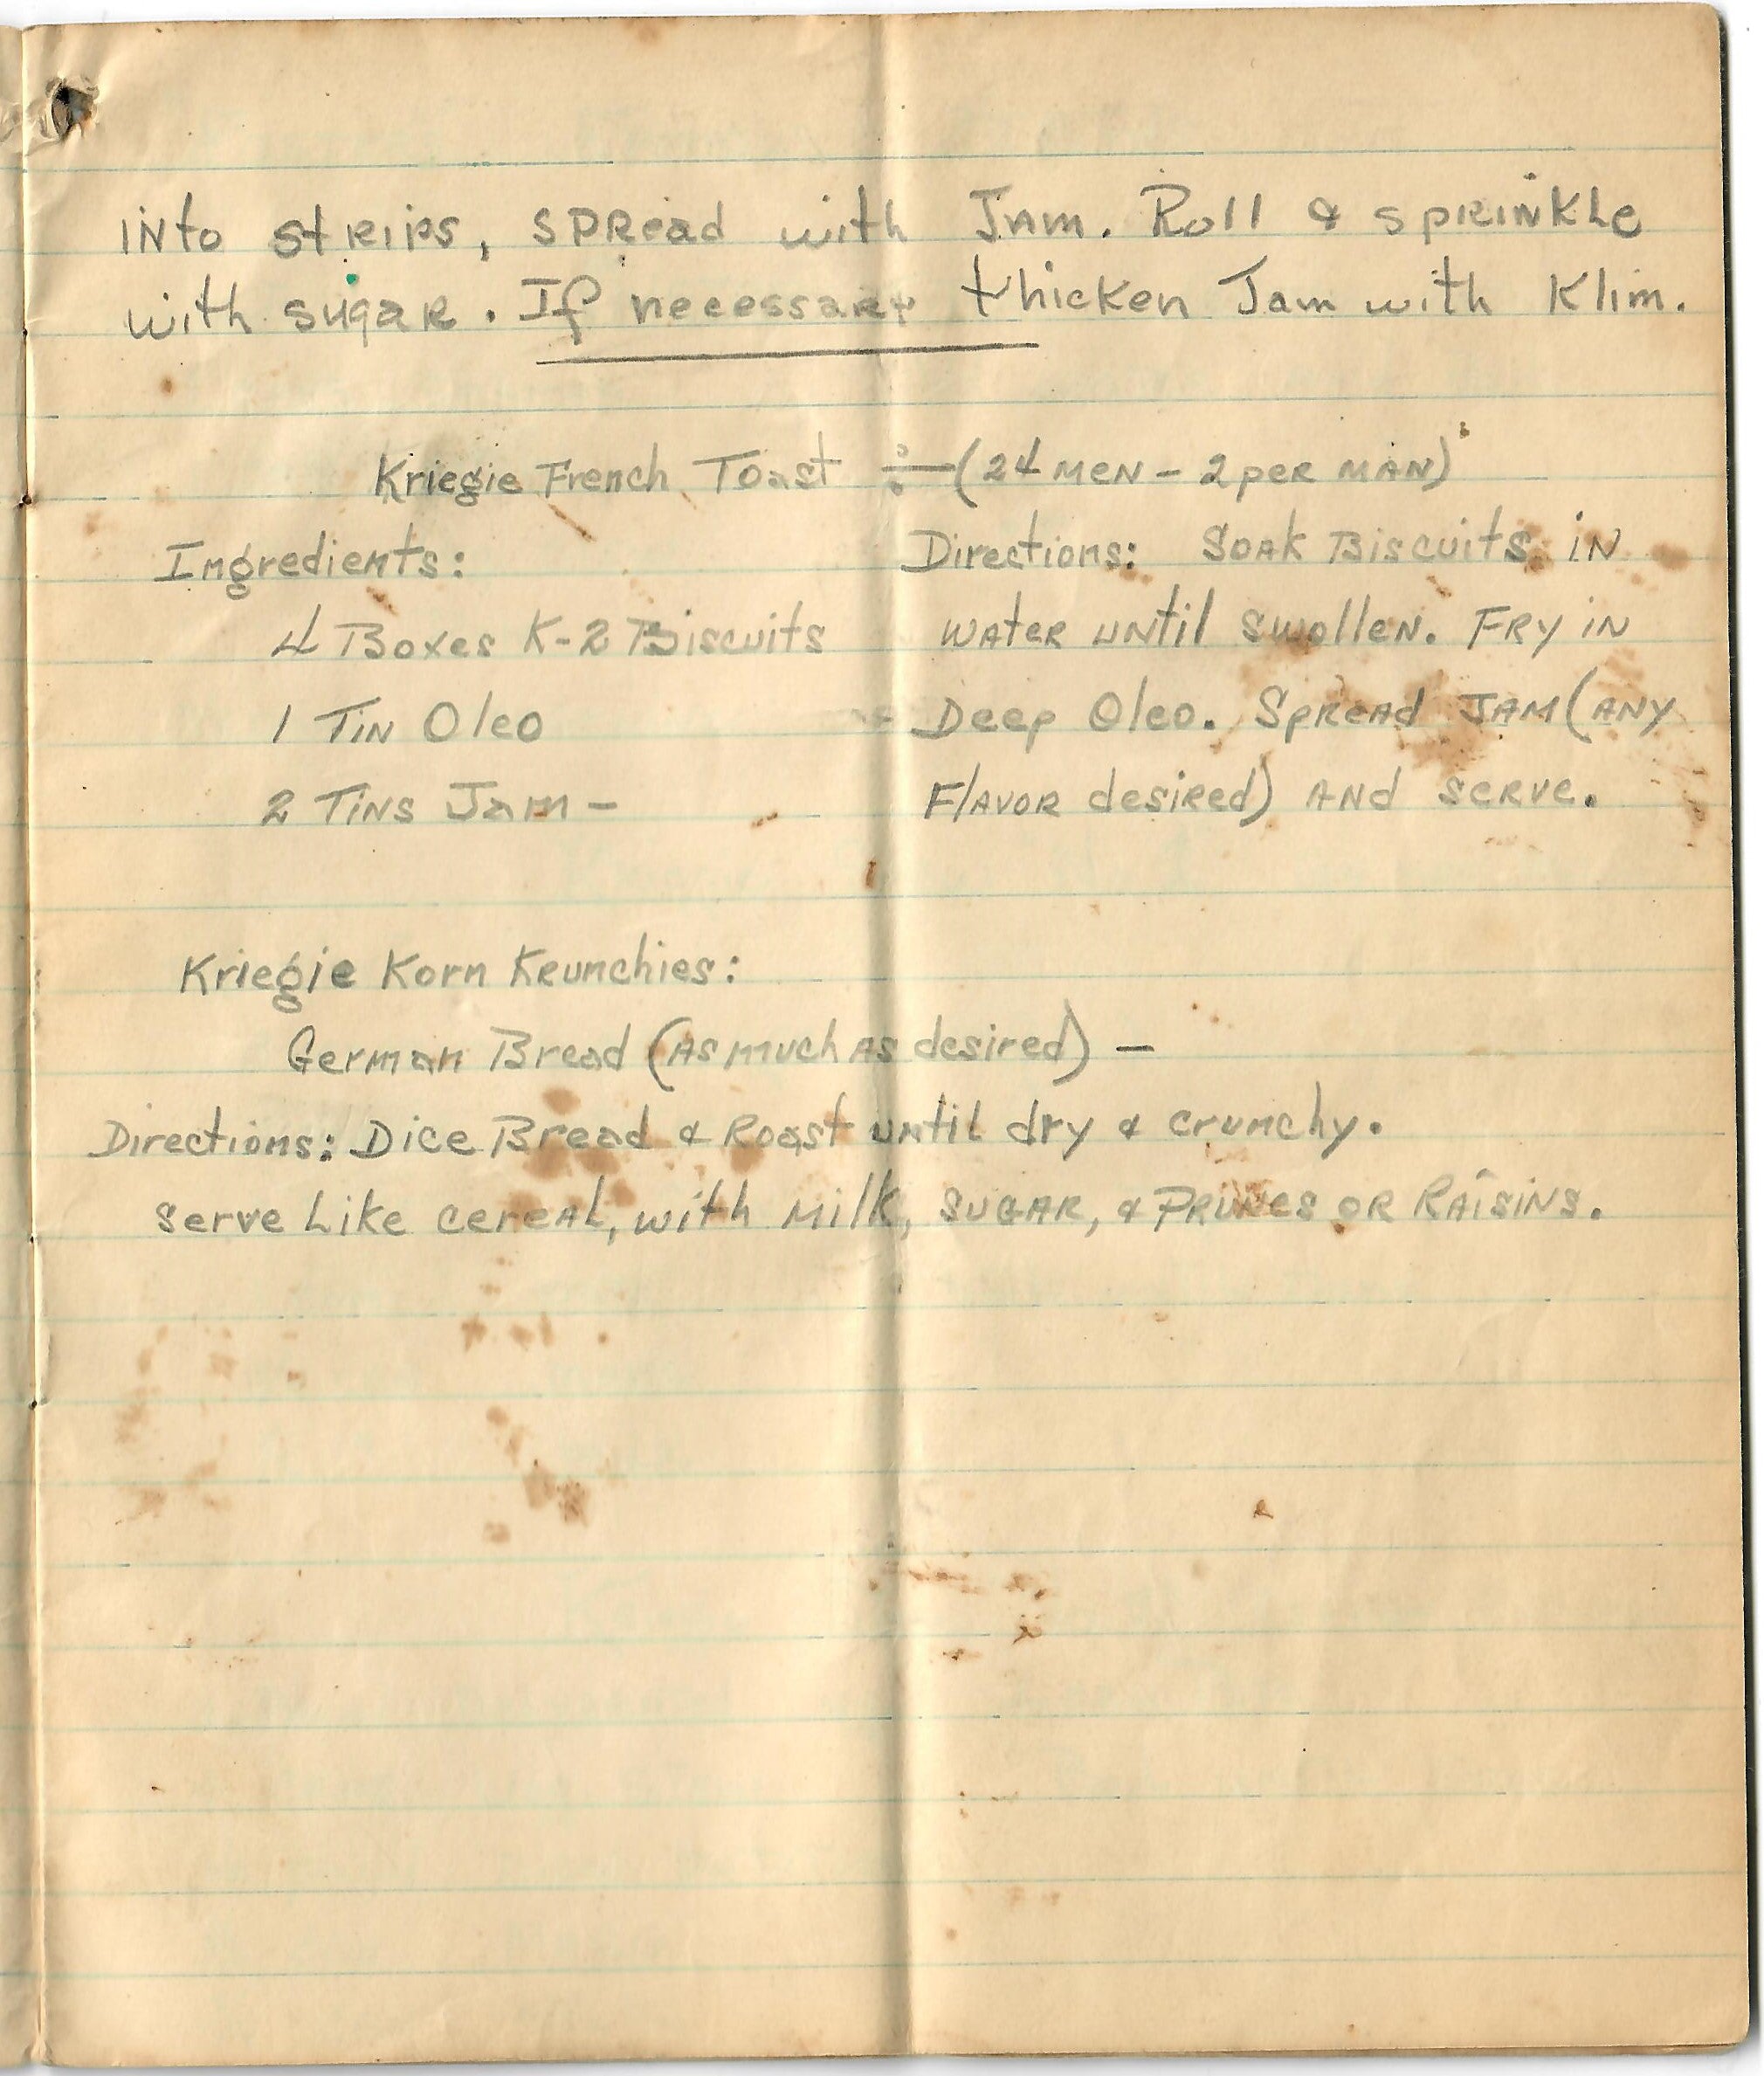 into strips, spread with Jam. Roll & sprinkle
with sugar. If necessary thicken Jam with Klim.
Kriegie French Toast ÷ (24 men - 2 per man)
Ingredients:
4 Boxes K-2 Biscuits
1 Tin Oleo
2 Tins Jam -
Directions: Soak Biscuits in
water until swollen. Fry in
Deep Oleo. Spread Jam (any
Flavor desired) and serve.
Kriegie Korn Krunchies:
German Bread (as much as desired) -
Directions: Dice Bread & Roast until dry & crunchy.
serve Like cereal, with milk, sugar, & Prunes or Raisins.